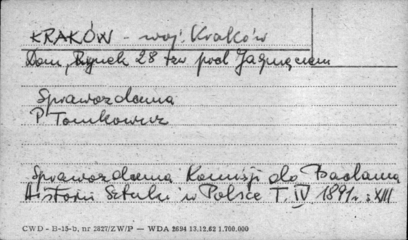 KRAKÓW - woj. Kraków
Dom, Rynek 28 tzw pod Jagnięciem
Sprawozdania
P. Tomkowicz
Sprawozdania Komisji do Badania
Historii Sztuki w Polsce T. IV 1891 r. XIII
CWD - B-15-b, nr 2827/ZW/P — WDA 2694 13.12.62 1.700.000